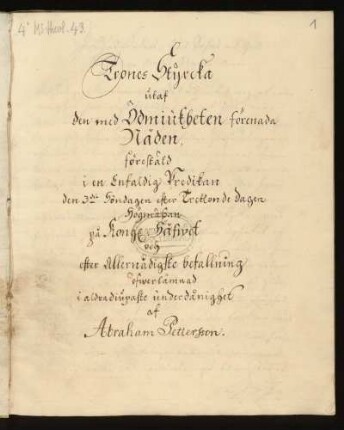 4° Ms. theol. 43
1
Trones Styrcka
utaf
den med Ödmiukheten förenada
Nåden,
förestäld
i en Enfaldig Predikan
den 3die Söndagen efter Trettonde dagen
Högmässan
på Konge Häfwet
och
efter Allernådigste befallning
öfwerlämnad
i aldradiupaste underdånighet
af
Abraham Petterson.